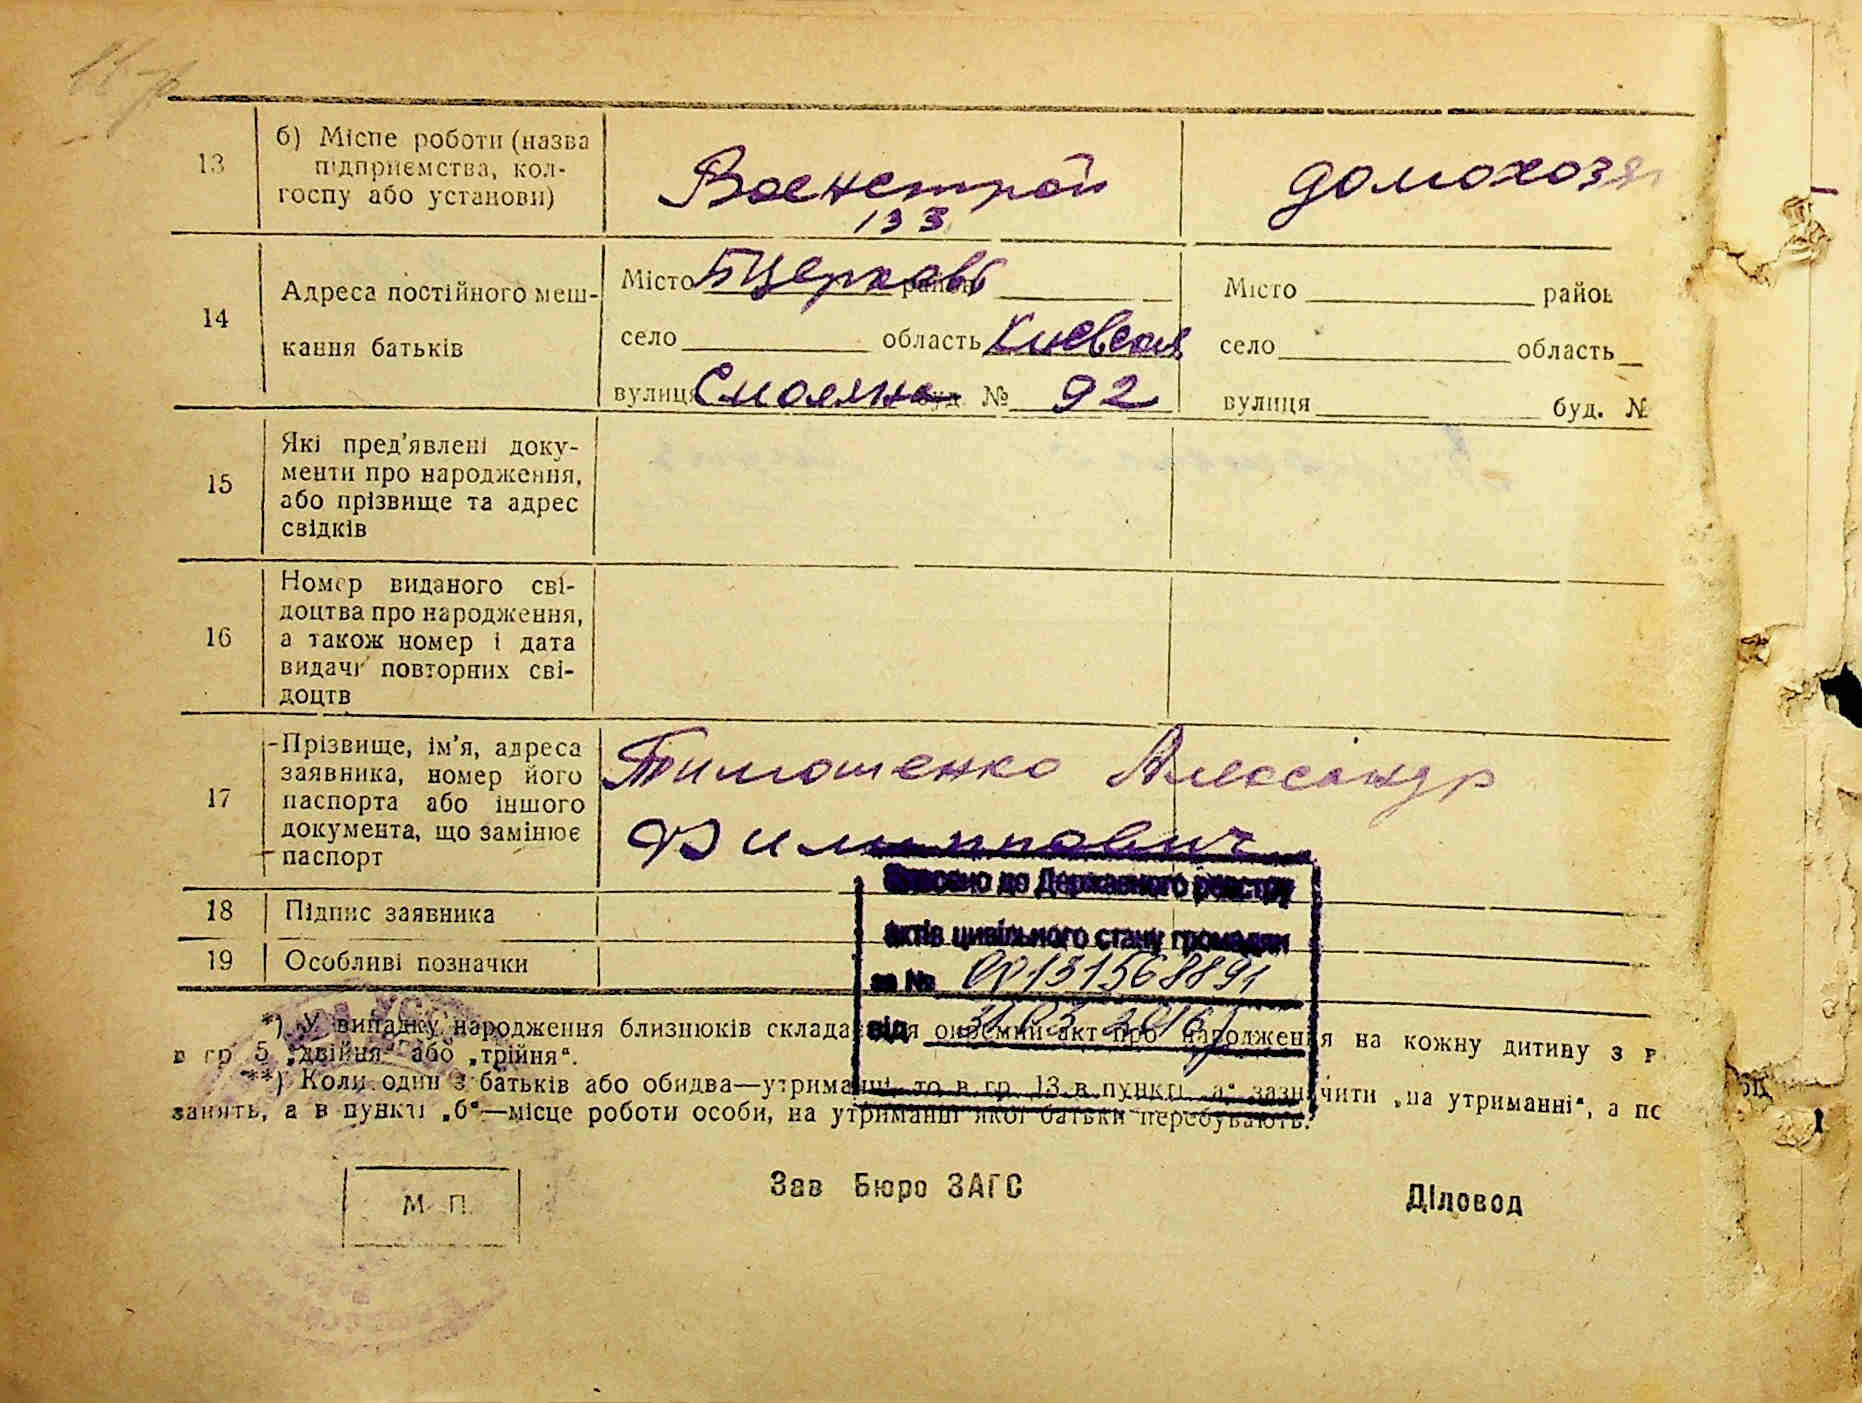 13 б) Місце роботи (назва підприємства, кол-
госпу або установи)
Военстрой домохозя
133
14 Адреса постійного меш-
кання батьків
Місто БЦерковь район Місто район
село область Киевская село область
вулиця буд. № 92 вулиця буд. №
15 Які пред'явлені доку-
менти про народження,
або прізвище та адрес
свідків
16 Номер виданого сві-
доцтва про народження,
а також номер і дата
видачі повторних сві-
доцтв
17 Прізвище, ім'я, адреса
заявника, номер його
паспорта або іншого
документа, що замінює
паспорт
Тимошенко Александр
Филиппович
18 Підпис заявника
19 Особливі позначки
Внесено до Державного реєстру
актів цивільного стану громадян
за № 00131568891
від
*) У випадку народження близнюків склада ся окремий акт про народження на кожну дитину з
в гр 5 „двійня“ або „трійня“.
**) Коли один з батьків або обидва—утриманці, то в гр. 13 в пункті „а“ зазначити „на утриманні“, а
занять, а в пункті „б“—місце роботи особи, на утриманні якої батьки перебувають.
М. П.
Зав Бюро ЗАГС Діловод